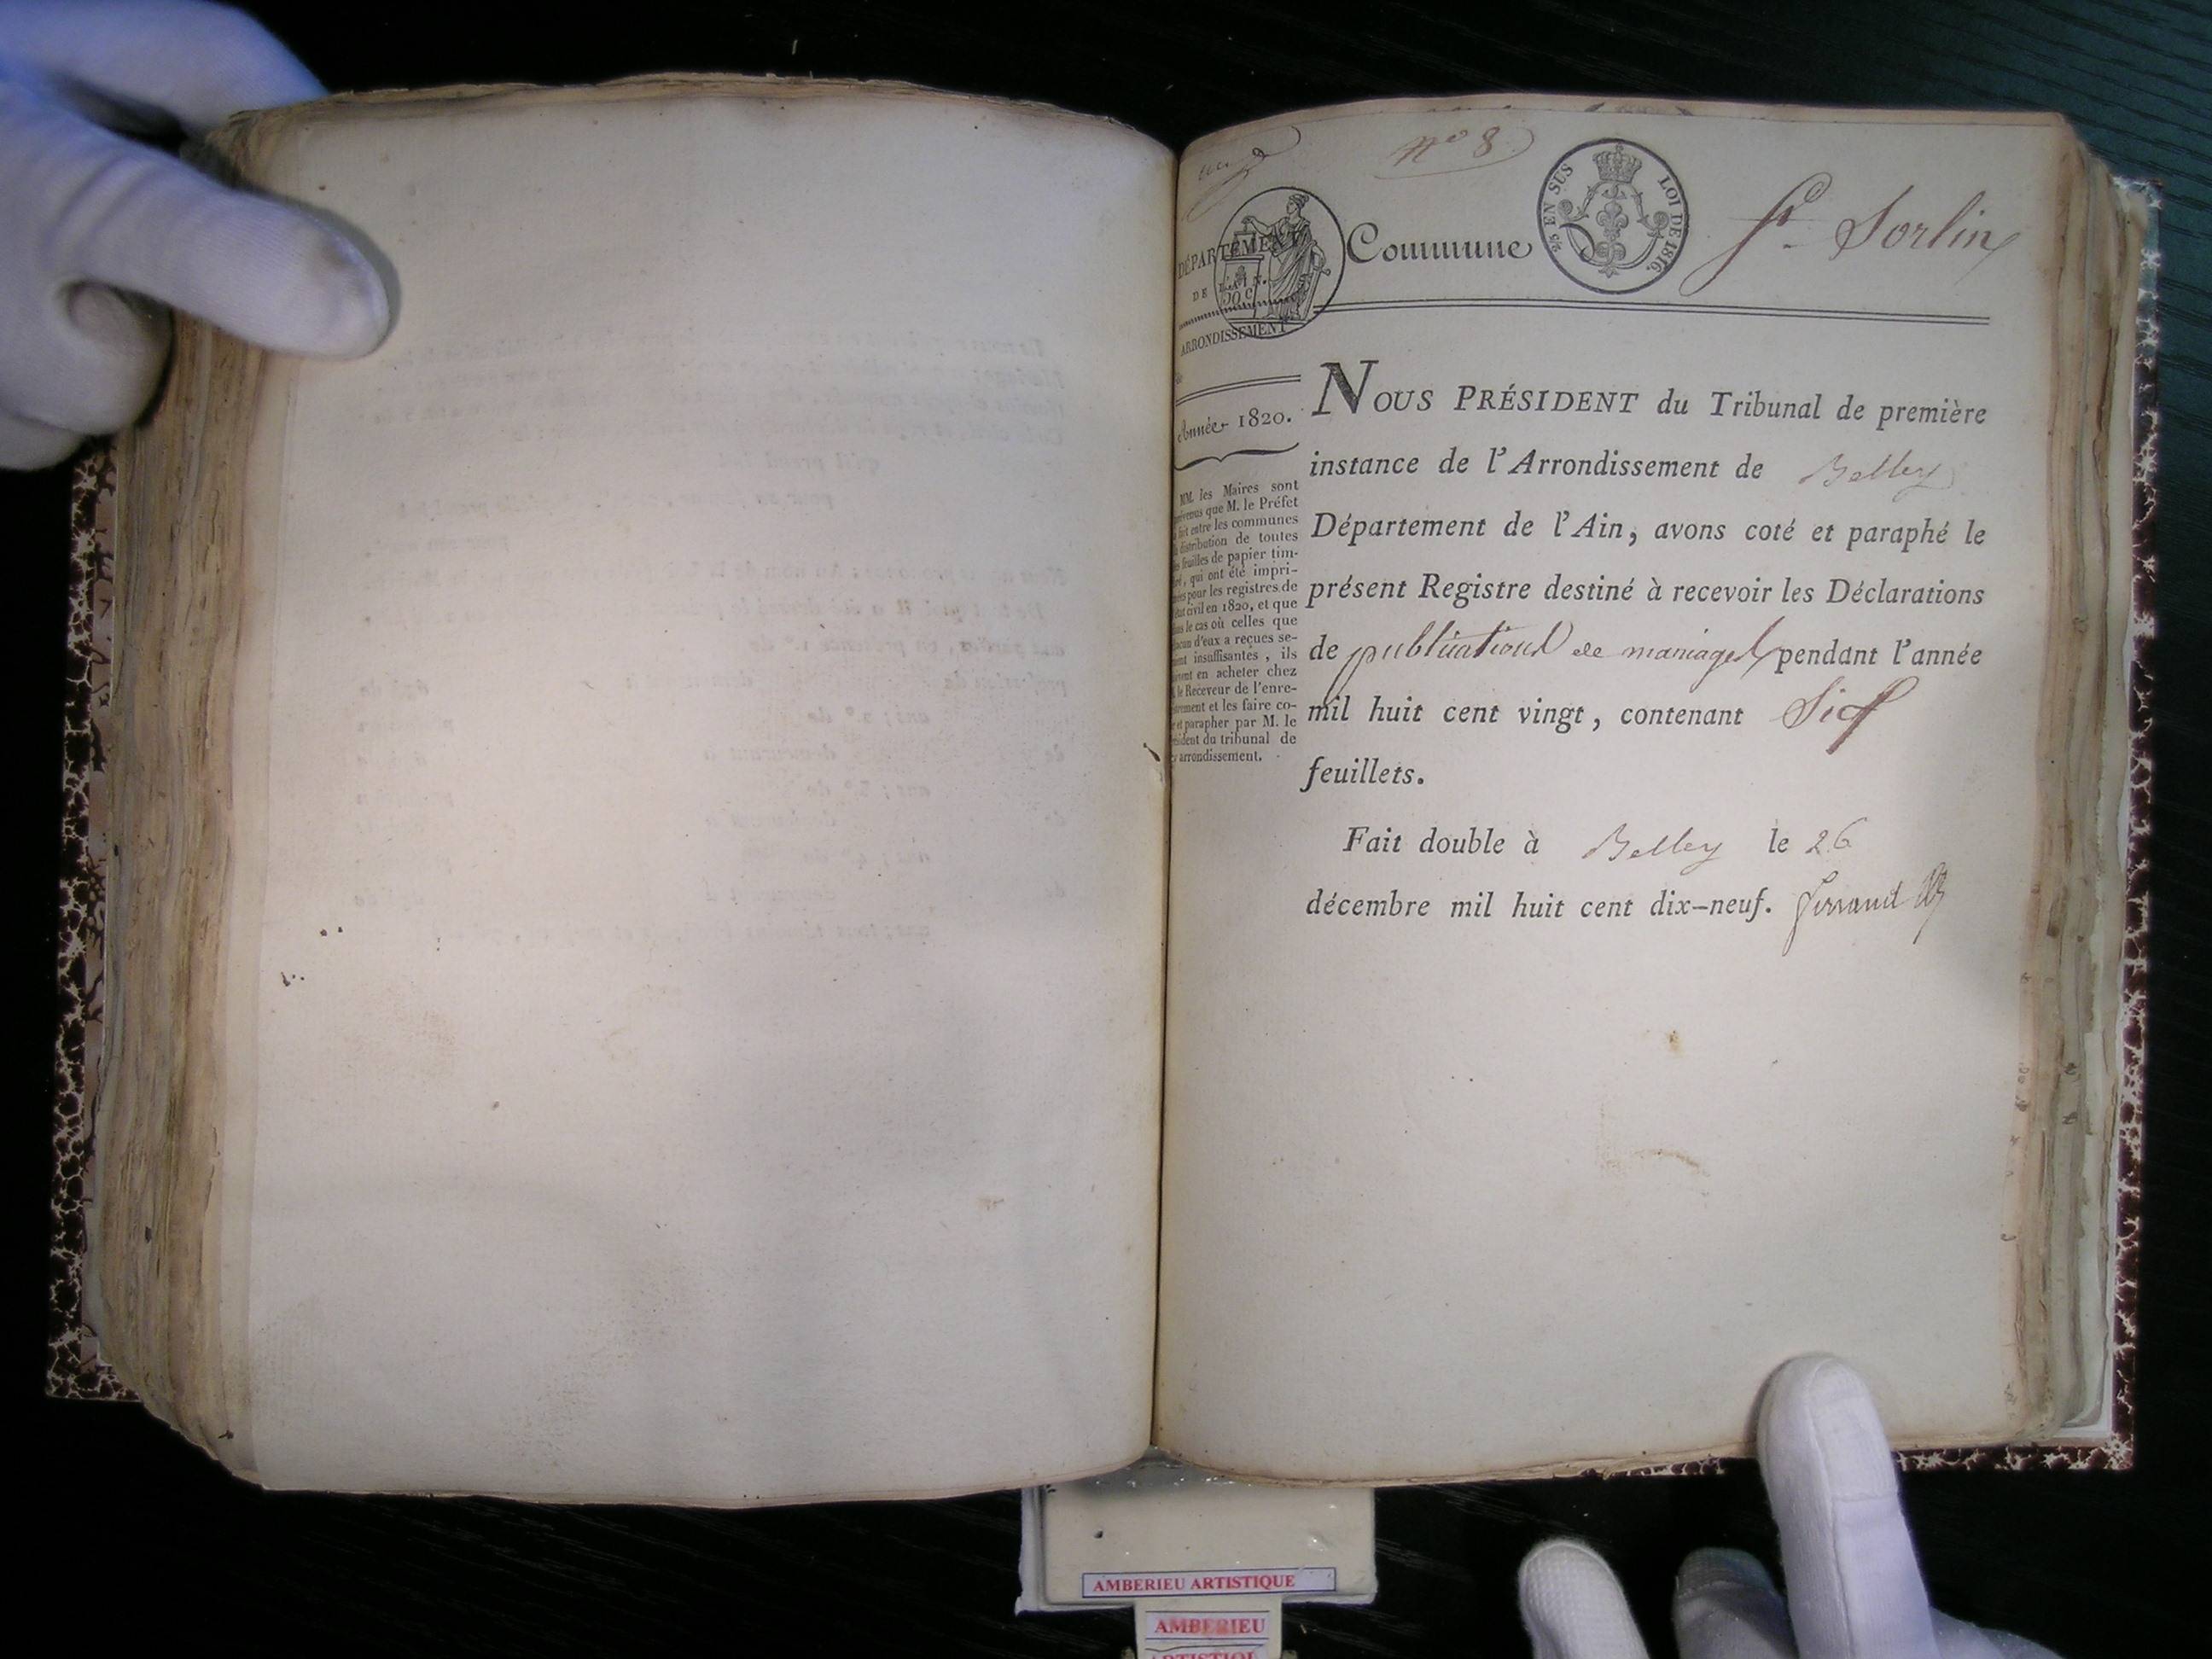 nº 8
DÉPARTEMENT
DE L'AIN.
20 c
Commune
2/5 EN SUS
LOI DE 1816.
St Sorlin
ARRONDISSEMENT
de
Année 1820.
MM. les Maires sont
prévenus que M. le Préfet
a fait entre les communes
la distribution de toutes
les feuilles de papier tim-
bré, qui ont été impri-
mées pour les registres de
l'état civil en 1820, et que
dans le cas où celles que
chacun d'eux a reçues se-
raient insuffisantes, ils
doivent en acheter chez
M. le Receveur de l'enre-
gistrement et les faire co-
ter et parapher par M. le
président du tribunal de
arrondissement.
NOUS PRÉSIDENT du Tribunal de première
instance de l'Arrondissement de Belley
Département de l'Ain, avons coté et paraphé le
présent Registre destiné à recevoir les Déclarations
de publications de mariages pendant l'année
mil huit cent vingt, contenant Six
feuillets.
Fait double à Belley le 26
décembre mil huit cent dix-neuf. Ferrand
AMBERIEU ARTISTIQUE
AMBERIEU
ARTISTIQUE